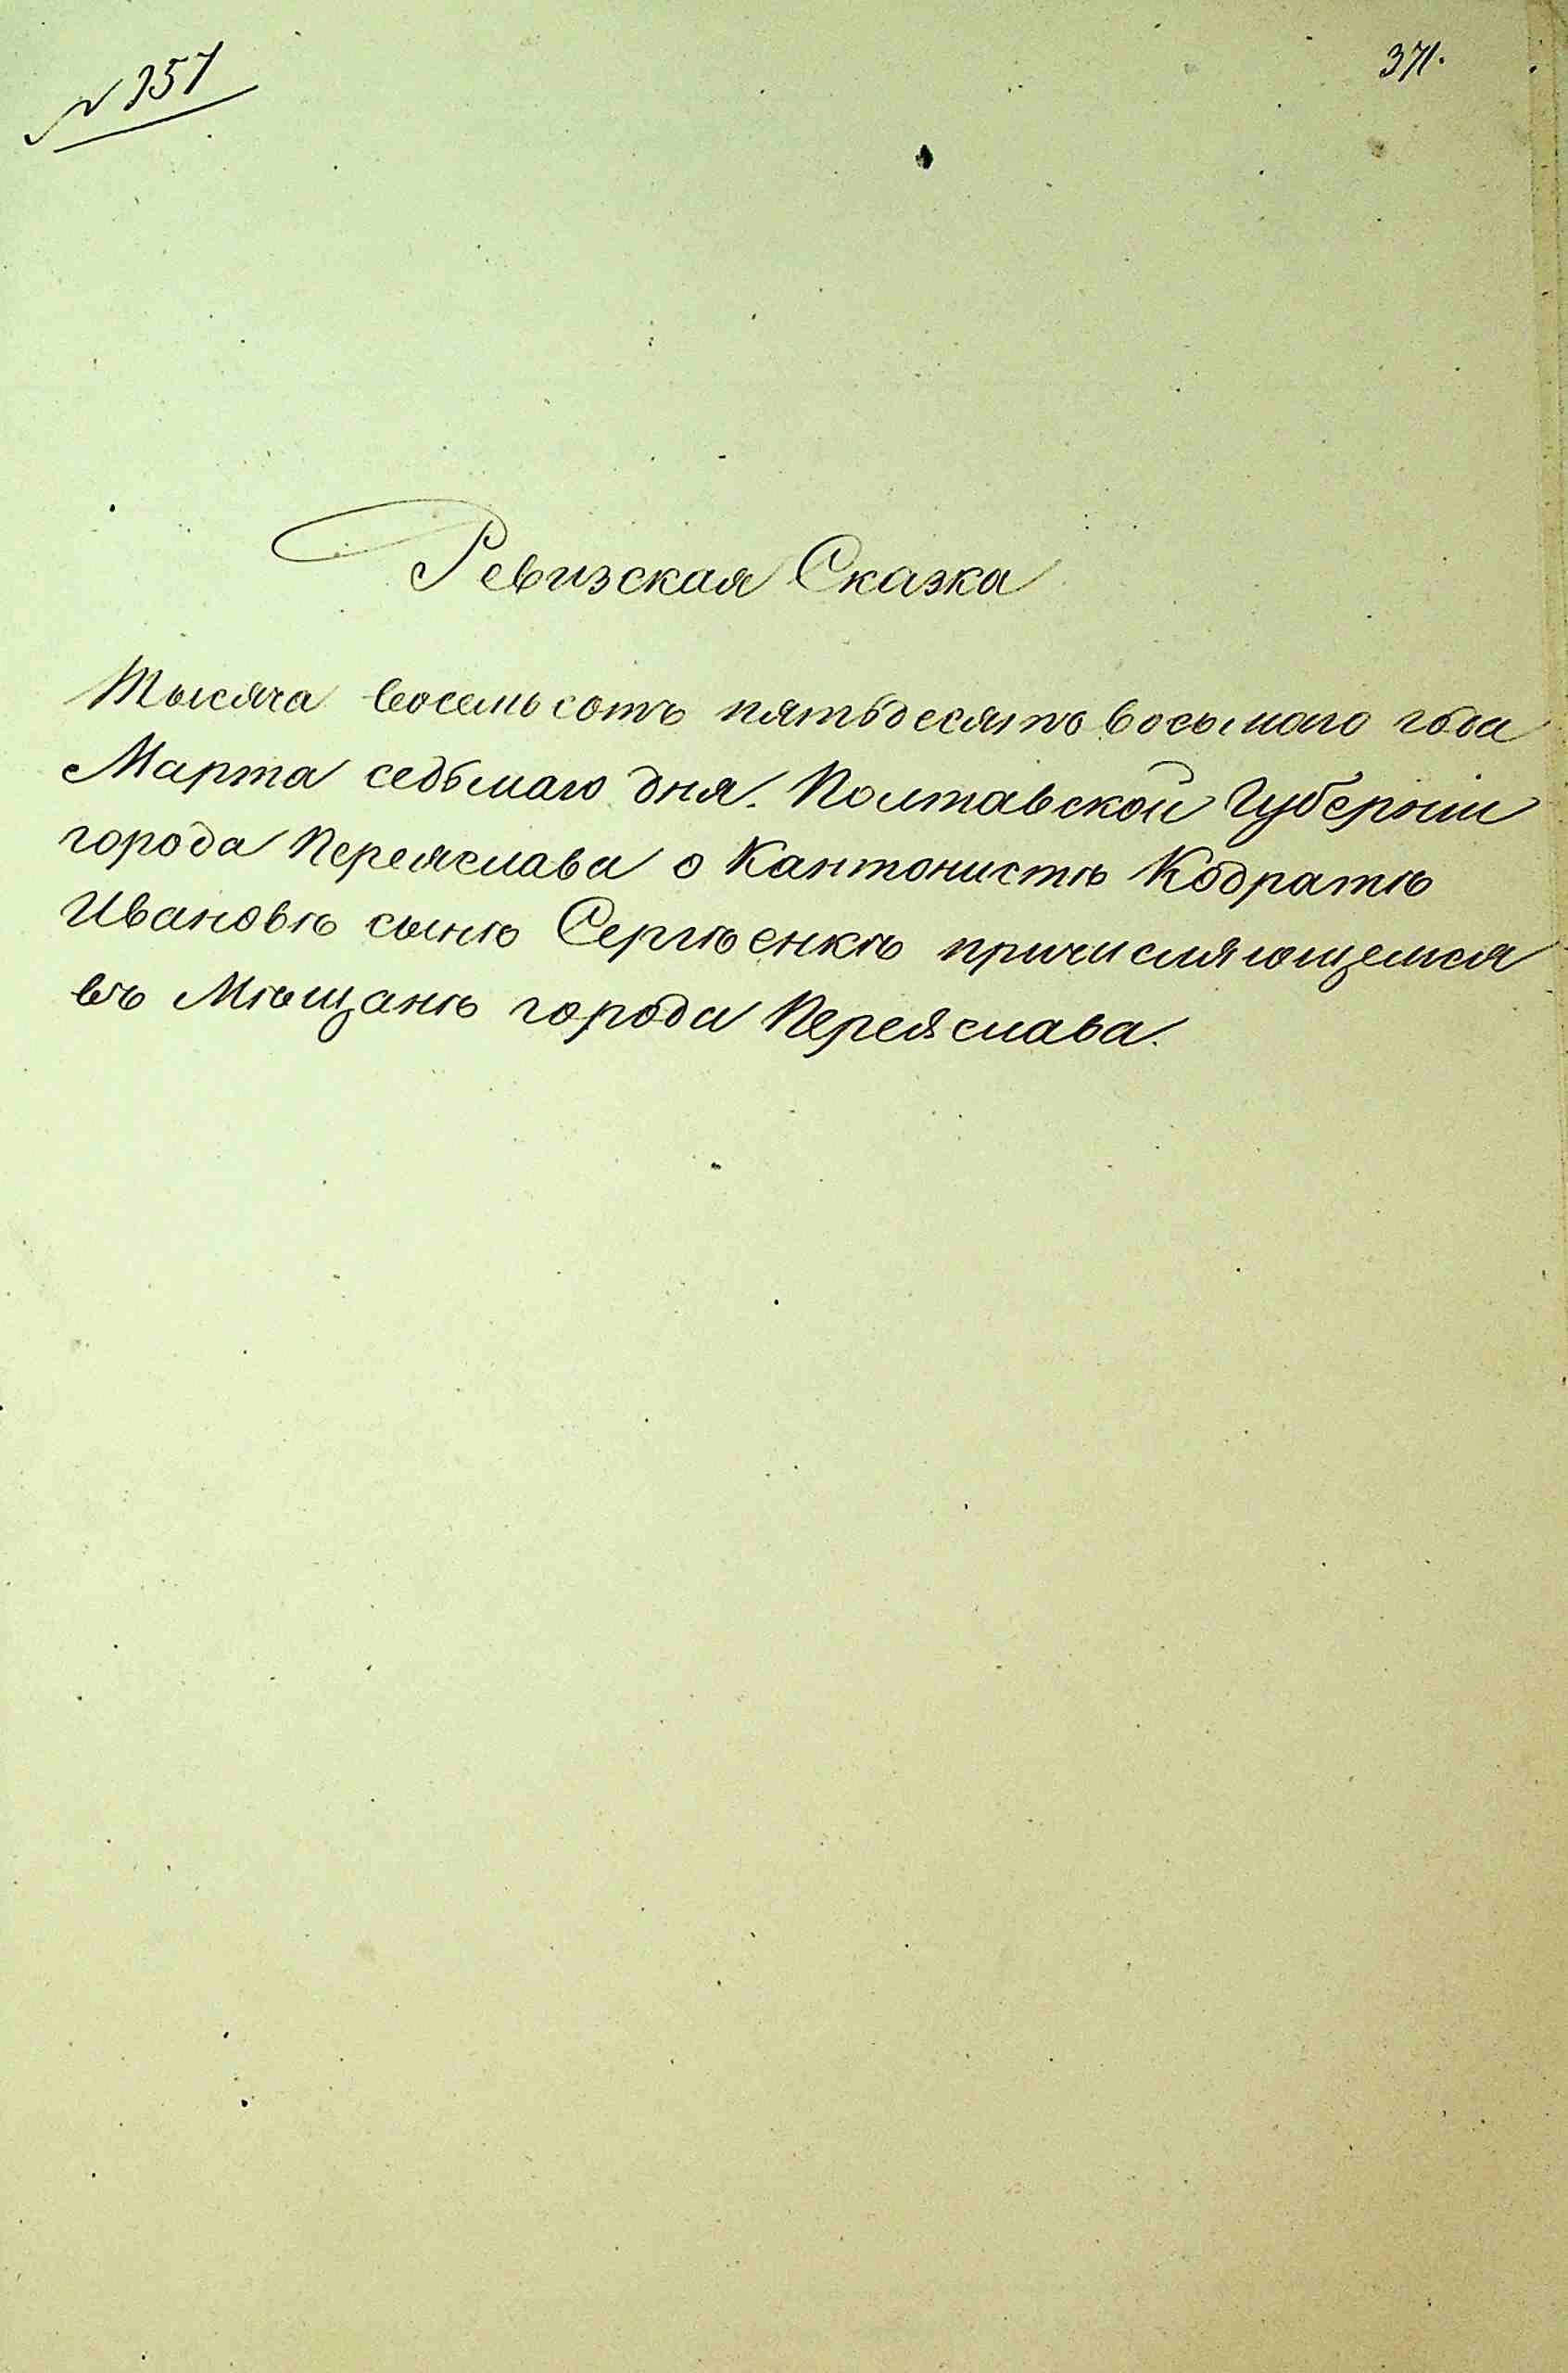 № 151
371.
Ревизская Сказка
Тысяча восемь сотъ пятьдесято восьмаго года
Марта седьмаго дня. Полтавской Губерніи
города Переяслава о Кантонистѣ Кодратѣ
Ивановѣ сынѣ Сергѣенкѣ причисляющемся
въ Мѣщанѣ города Переяслава.